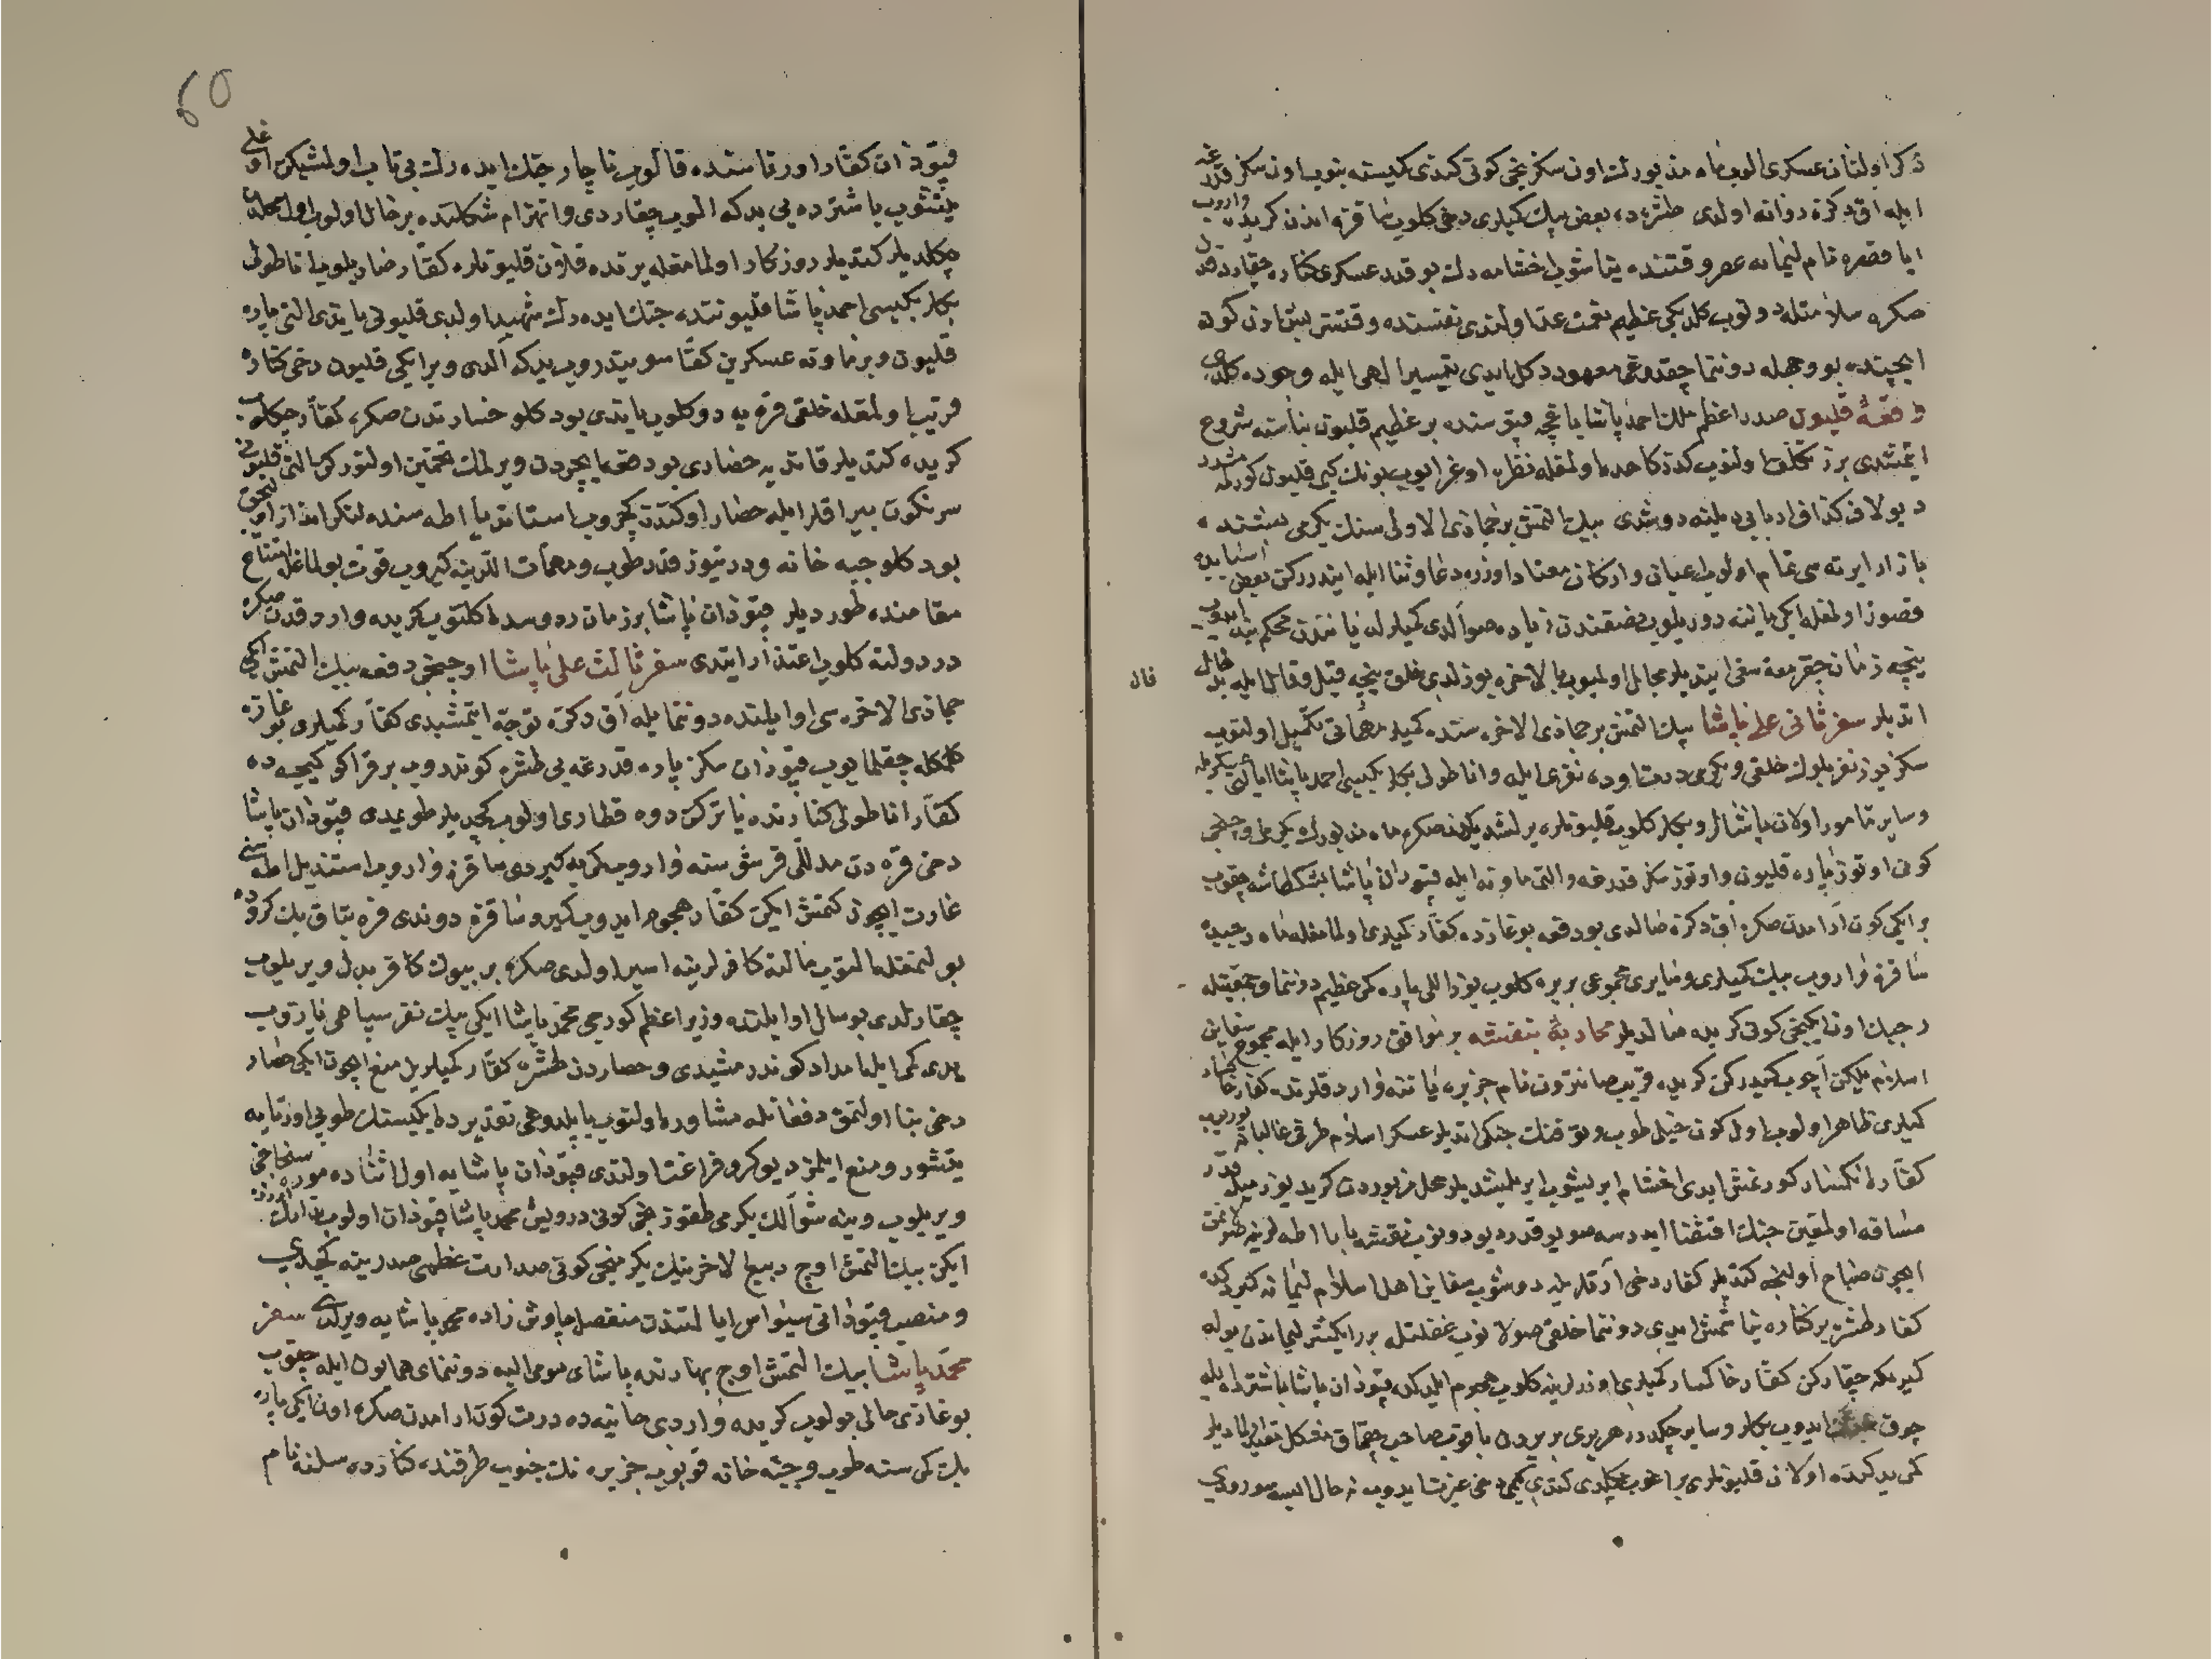 ذكر اولنان عسكرى الوب ماه مزبورك اون سكزنجى كونى كندى كميسنه بنوب اون سكز قدرغه
ايله اق دكزه روانه اولدى طشره ده بعض بيك كميلرى دخى كلوب ساقزه اندن كريده واروب
ايا نام ليمانه عصر وقتنده يناشوب اخشامه دك بو قدر عسكرى كناره چقاردقدن
صكره سلامتله دونوب كلديكى عظيم نعمت عد اولندى نفسنده وقتسز بش اون كون
ايچنده بو وجهله دوننما چقدوغى معهود دكل ايدى تيسير الهى ايله وجوده كلدى
وقعهٔ قليون صدر اعظم ملك احمد پاشا باغچه قپوسنده بر عظيم قليون بناسنه شروع
ايتمشدى
ديو لاف كذاف اربابى ديلنه دوشدى بيك التمش بر جماذى الاولى سنك يكرمى بشنده
بازار ايرته سى تمام اولوب اعيان واركان معتاد اوزره دعا وثنا ايله ايندرركن بعض
قصور اولمغله ايكى يانه دوريلوب
نيچه زمان چقرمغه سعى ايتديلر مجال اولميوب بالاخره بوزلدى خلق نيچه قيل وقال ايله
قال
اتديلر سفر ثانى على پاشا بيك التمش بر جماذى الاخره سنده كميلر مهماتى تكميل اولنوب
سكز يوز نفر بلوك خلقى و يكرمى درت اوده نفرى ايله واناطولى بكلربكيسى احمد پاشا
وساير مامور اولان پاشالر وبكلر كلوب قليونلره يرلشديكدن صكره ماه مزبورك يكرمى
كونى اوتوز پاره قليون واوتوز سكز قدرغه والتى ماونه ايله قپودان پاشا بشكطاشه چقوب
بر ايكى كون ارامدن صكره اق دكزه صالدى بو دفعه بوغازده كفار كميلرى اولمامغله ماه رجبده
ساقزه واروب بيك كميلرى وسايرى مجموعى بر يره كلوب يوز اللى پاره كمى عظيم دوننما وجمعيتله
رجبك اون ايكنجى كونى كريده صالديلر محاربهٔ بنفشه بر موافق روزكار ايله مجموع سفاين
اسلام يلكن اچوب كيدركن كريده قريب صانترون نام جزيره ياننه واردقلرنده كفار
كميلرى ظاهر اولوب اول كون خيلى طوپ وتفنك جنكى اتديلر عسكر اسلام طرفى غالبانه
كفارده انكسار كورنمش ايدى اخشام ايريشوب ايريلشديلر محل مزبوردن كريد يوز ميل قدر
مسافه اولمغين جنك اقتضا ايدرسه صويو قدر ديو دونوب بنفشه بابا اطه لرينه
ايچون صباح اولنجه كتديلر كفار دخى اردلرينه دوشوب سفاين اهل اسلام ليمانه كيردكده
كفار طشره بر كناره يناشمش ايدى دوننما خلقى صولانوب غفلتله برر ايكيشر ليماندن يوله
كيرمكه چقاركن كفار خاكسار كميلرى اوزرلرينه كلوب هجوم ايلدكده قپودان پاشا باشترده ايله
چوق ايدوب بكلر وساير چكدرر هر برى بر يردن باقوب صاحب چقماق مشكل
كريد كنده اولان قليونلرى براغوب چكلدى كتدى كيمى دخى عزيمت ايدوب نه حال ايسه
60
قپوذان كفار اورتاسنده قالوب ناچار جنك ايده رك بى تاب اولمشيكن على
يتشوب باشترده يى يدكه الوب چقاردى وانهزام شكلنده بر حال اولوب اول محلدن
چكلديلر كتديلر روزكار اولمامغله يرنده قلان قليونلره كفار صاريلوب اناطولى
بكلربكيسى احمد پاشا قليوننده جنك ايده رك شهيد اولدى قليونى ياندى التى پاره
قليون وبر ماونه عسكرين كفار سويندروب يدكه الدى وبر ايكى قليون دخى كناره
قريب اولمغله خلقى قره يه دوكلوب ياندى بو دكلو خساردن صكره كفار چكلوب
كريده كتديلر قانديه حصارى بودقه يا يچردن ويرلك تخمين اولنوركن التى قليونى
سرنكون بيراقلر ايله حصار اوكندن كچروب استانديا اطه سنده لنكر انداز اولوب
بو دكلو جبه خانه ودرتيوز قدر طوپ ومهمات اللرينه كيروب قوت بولمالغله امتناع
مقامنده طورديلر قپوذان پاشا بر زمان رودوسده اكلنوب كريده واردقدن صكره
در دولته كلوب اعتذار ايتدى سفر ثالث على پاشا اوچنجى دفعه بيك التمش ايكى
جماذى الاخره سى اوايلنده دوننما ايله اق دكزه توجه ايتمشيدى كفار كميلرى بوغازه
كلمكله چقلمايوب قپوذان سكز پاره قدرغه يى طشره كوندروب بر قراكو كيجه ده
كفار اناطولى كنارنده ياتركن دوه قطارى اولوب كچديلر طويمدى قپوذان پاشا
دخى قره دن مدللى قرشوسنه واروب كمى يه كيردى ساقزه واروب استنديل اطه سنى
غارت ايچون كتمش ايكن كفار هجوم ايدوب كيرو ساقزه دوندى قره بتاق بك كروده
بولنمغله النوب مالته كافرلرينه اسير اولدى صكره بر بيوك كافر بدل ويريلوب
چقارلدى بو سال اوايلنده وزير اعظم كورجى محمد پاشا ايكى بيك نفر سپاهى يازوب
يدى كمى ايله امداد كوندرمشيدى وحصاردن طشره كفار كميلرين منع ايچون ايكى حصار
دخى بنا اولنمق دفعاتله مشاوره اولنوب ياپلدوغى تقديرده ايكيسنك طوپى اورتايه
يتشور ومنع ايلمز ديو كرو فراغت اولندى قپوذان پاشايه اول اثناده موره سنجاغى
ويريلوب وينه شوالك يكرمى طقوزنجى كونى درويش محمد پاشا قپوذان اولوب
ايكن بيك التمش اوچ ربيع الاخرينك يكرمنجى كونى صدارت عظمى صدرينه كچدى
ومنصب قپوذانى سيواس ايالتندن منفصل چاوش زاده محمد پاشايه ويرلدى سفر
محمد پاشا بيك التمش اوچ بهارنده پاشاى مومى اليه دوننماى همايون ايله چقوب
بوغازى خالى بولوب كريده واردى حانيه ده درت كون ارامدن صكره اون ايكى پاره
بك كمى سنه طوپ وجبه خانه قويوب جزيره نك جنوب طرفنده كنارده سلنه نام